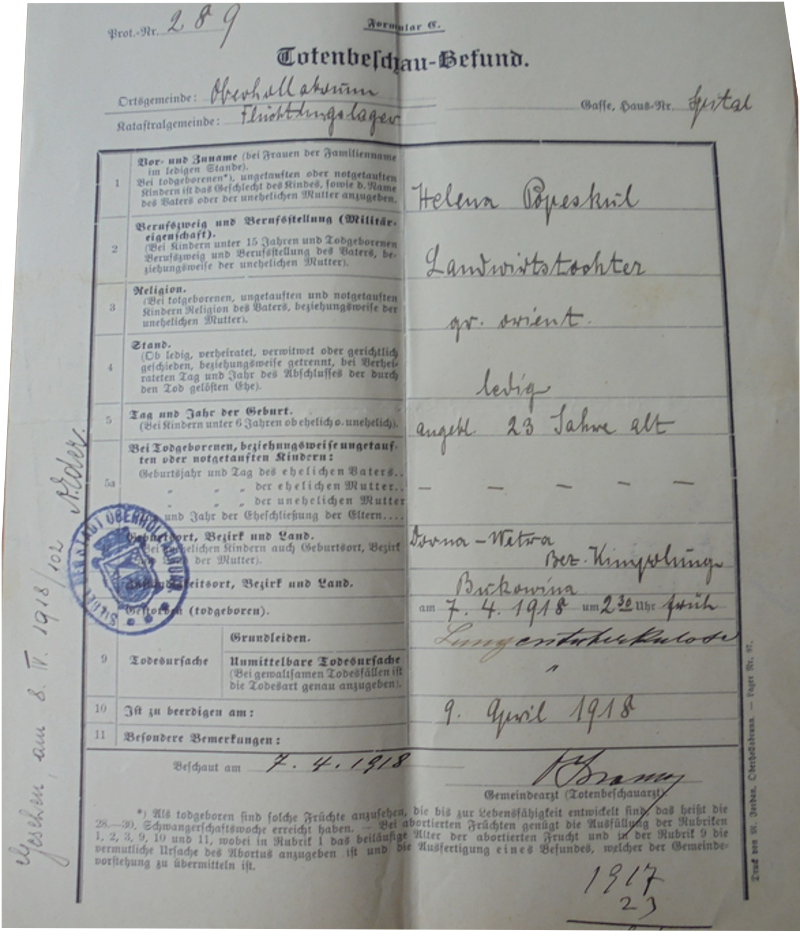 Prot.-Nr. 289
Formular C.
Totenbeschau-Befund.
Ortsgemeinde: Oberhollabrunn
Katastralgemeinde: Flüchtlingslager
Gasse, Haus-Nr. Spital
1
Vor- und Zuname (bei Frauen der Familienname
im ledigen Stande).
Bei todgeborenen*), ungetauften oder notgetauften
Kindern ist das Geschlecht des Kindes, sowie d. Name
des Vaters oder der unehelichen Mutter anzugeben.
Helena Popeskul
2
Berufszweig und Berufsstellung (Militär-
eigenschaft).
(Bei Kindern unter 15 Jahren und Todgeborenen
Berufszweig und Berufsstellung des Vaters, be-
ziehungsweise der unehelichen Mutter).
Landwirtstochter
3
Religion.
(Bei totgeborenen, ungetauften und notgetauften
Kindern Religion des Vaters, beziehungsweise der
unehelichen Mutter).
gr. orient.
4
Stand.
(Ob ledig, verheiratet, verwitwet oder gerichtlich
geschieden, beziehungsweise getrennt, bei Verhei-
rateten Tag und Jahr des Abschlusses der durch
den Tod gelösten Ehe).
ledig
5
Tag und Jahr der Geburt.
(Bei Kindern unter 6 Jahren ob ehelich o. unehelich).
angebl. 23 Jahre alt
5a
Bei Todgeborenen, beziehungsweise ungetauf-
ten oder notgetauften Kindern:
Geburtsjahr und Tag des ehelichen Vaters..
" " " der ehelichen Mutter..
" " " der unehelichen Mutter
und Jahr der Eheschließung der Eltern....
— — — — —
Geburtsort, Bezirk und Land.
Kindern auch Geburtsort, Bezirk
der Mutter).
Dorna-Watra
Bez. Kimpolung
ort, Bezirk und Land.
Bukowina
Gestorben (todgeboren).
am 7. 4. 1918 um 2 30 Uhr früh
9
Todesursache
Grundleiden.
Lungentuberkulose
Unmittelbare Todesursache
(Bei gewaltsamen Todesfällen ist
die Todesart genau anzugeben).
"
10
Ist zu beerdigen am:
9. April 1918
11
Besondere Bemerkungen:
Beschaut am 7. 4. 1918
Gemeindearzt (Totenbeschauarzt).
*) Als todgeboren sind solche Früchte anzusehen, die bis zur Lebensfähigkeit entwickelt sind, das heißt die
28.—30. Schwangerschaftswoche erreicht haben. — Bei abortierten Früchten genügt die Ausfüllung der Rubriken
1, 2, 3, 9, 10 und 11, wobei in Rubrik 1 das beiläufige Alter der abortierten Frucht und in der Rubrik 9 die
vermutliche Ursache des Abortus anzugeben ist und die Ausfertigung eines Befundes, welcher der Gemeinde-
vorstehung zu übermitteln ist.
1917
23
Gesehen, am 8. IV. 1918/102
STADT OBERHOLLABRUNN
Druck von M. Jordan, Oberhollabrunn. — Lager Nr. 97.